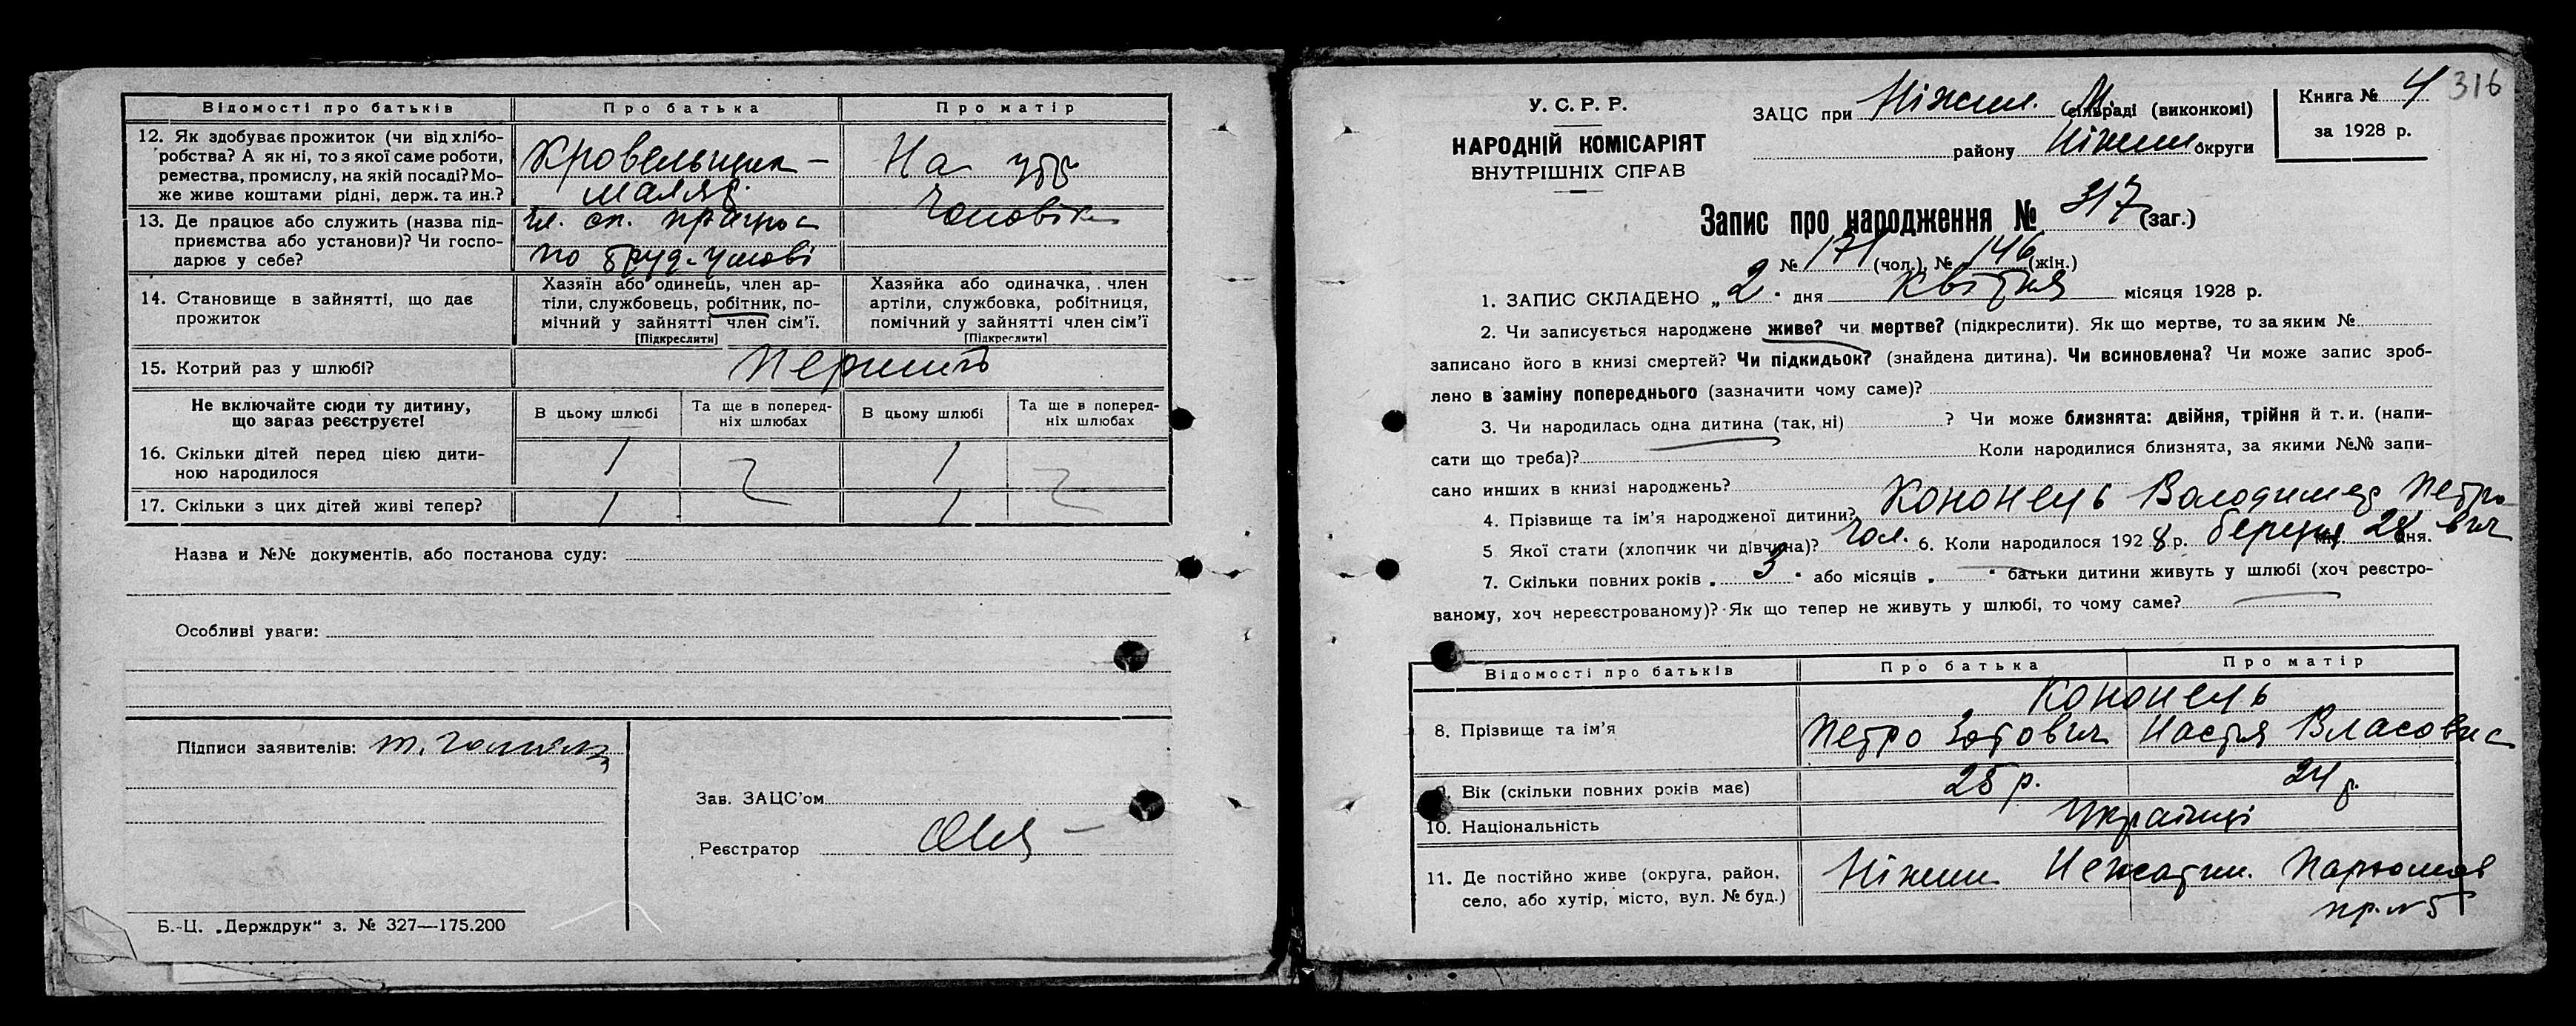 Відомості про батьків Про батька Про матір
12. Як здобуває прожиток (чи від хлібо-
робства? А як ні, то з якої саме роботи,
ремества, промислу, на якій посаді? Мо-
же живе коштами рідні, держ. та ин.?
Кровельщик —
маляр.
На утр
Чоловіка
13. Де працює або служить (назва під-
приємства або установи)? Чи госпо-
дарює у себе?
Чл. сп.
по труд-умові
14. Становище в зайнятті, що дає
прожиток
Хазяїн або одинець, член ар-
тіли, службовець, робітник, по-
мічний у зайнятті член сім'ї.
[Підкреслити]
Хазяйка або одиначка, член
артіли, службовка, робітниця,
помічний у зайнятті член сім'ї
[Підкреслити]
15. Котрий раз у шлюбі?
Не включайте сюди ту дитину,
що зараз реєструєте!
В цьому шлюбі
Та ще в поперед-
ніх шлюбах
В цьому шлюбі
Та ще в поперед-
ніх шлюбах
16. Скільки дітей перед цією дити-
ною народилося
1 1
17. Скільки з цих дітей живі тепер? 1 1
Назва и №№ документів, або постанова суду:
Особливі уваги:
Підписи заявителів:
Зав. ЗАЦС'ом
Реєстратор
Б.-Ц. „Держдрук" з. № 327—175.200
316
У. С. Р. Р.
НАРОДНІЙ КОМІСАРІЯТ
ВНУТРІШНІХ СПРАВ
ЗАЦС при Ніжин. М. сільраді (виконкомі)
району Ніжин округи
Книга № 4
за 1928 р.
Запис про народження № 317 (заг.)
№ 171 (чол.), № 146 (жін.)
1. ЗАПИС СКЛАДЕНО „2" дня Квітня місяця 1928 р.
2. Чи записується народжене живе? чи мертве? (підкреслити). Як що мертве, то за яким №
записано його в книзі смертей? Чи підкидьок? (знайдена дитина). Чи всиновлена? Чи може запис зроб-
лено в заміну попереднього (зазначити чому саме)?
3. Чи народилась одна дитина (так, ні) ? Чи може близнята: двійня, трійня й т. и. (напи-
сати що треба)? Коли народилися близнята, за якими №№ запи-
сано инших в книзі народжень?
4. Прізвище та ім'я народженої дитини? Кононець Володимер Петро-
вич
5. Якої статі (хлопчик чи дівчина)? Чол. 6. Коли народилося 1928 р. березня 28 дня.
7. Скільки повних років „3" або місяців „ " батьки дитини живуть у шлюбі (хоч реєстро-
ваному, хоч нереєстрованому)? Як що тепер не живуть у шлюбі, то чому саме?
Відомості про батьків Про батька Про матір
8. Прізвище та ім'я
Кононець
Петро Зотович Настя Власовна
9. Вік (скільки повних років має) 25 р. 24 р.
10. Національність Українці
11. Де постійно живе (округа, район,
село, або хутір, місто, вул. № буд.)
Ніжин
пр. № 5